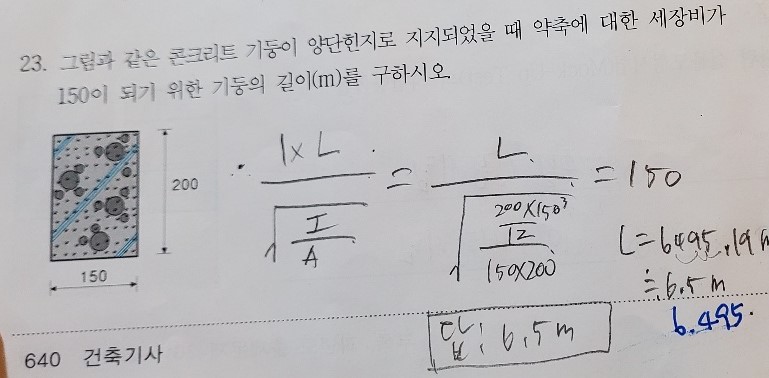 23. 그림과 같은 콘크리트 기둥이 양단힌지로 지지되었을 때 약축에 대한 세장비가
150이 되기 위한 기둥의 길이(m)를 구하시오.
200
150
1×L / √(I/A) = L / √((200×150³/12)/(150×200)) = 150
L=6495.19m
≒6.5m
6.495.
답: 6.5m
640 건축기사